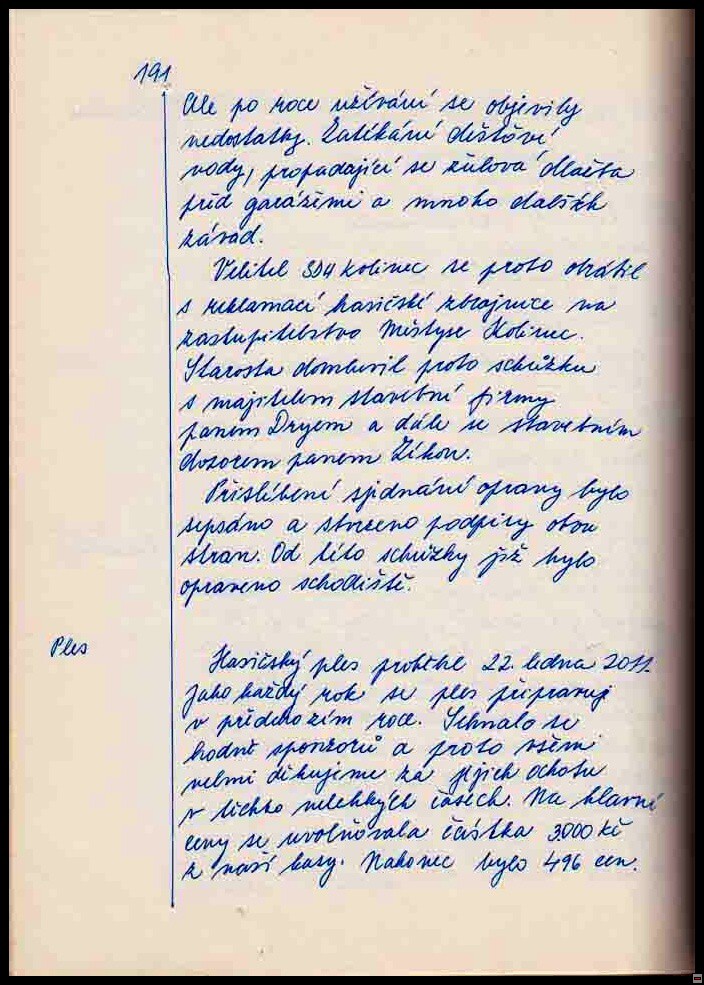 191
Ale po roce užívání se objevily
nedostatky. Zatékání dešťové
vody, propadající se žulová dlažba
před garážemi a mnoho dalších
závad.
Velitel SDH Kolinec se proto obrátil
s reklamací hasičské zbrojnice na
zastupitelstvo Městyse Kolinec.
Starosta domluvil proto schůzku
s majitelem stavební firmy
panem Dryem a dále se stavebním
dozorem panem Zikou.
Přislíbení sjednání opravy bylo
sepsáno a stvrzeno podpisy obou
stran. Od této schůzky již bylo
opraveno schodiště.
Ples
Hasičský ples proběhl 22. ledna 2011.
Jako každý rok se ples připravuj
v předchozím roce. Sehnalo se
hodně sponzorů a proto všem
velmi děkujeme za jejich ochotu
v těchto nelehkých časech. Na hlavní
ceny se uvolňovala částka 3.000 kč
z naší kasy. Nakonec bylo 496 cen.